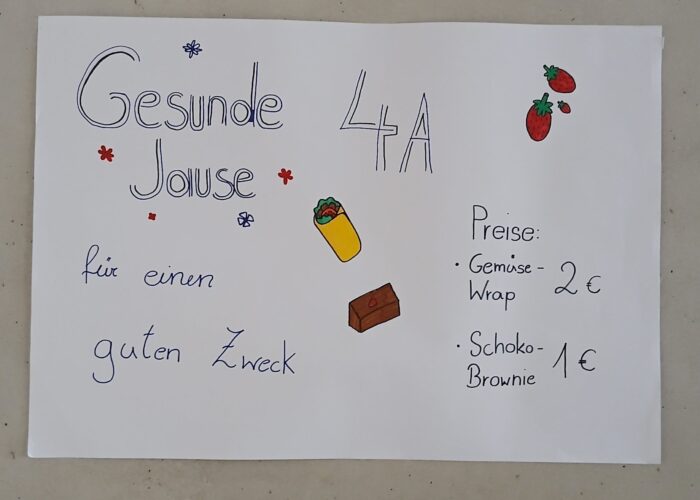 Gesunde
Jause
4A
für einen
guten Zweck
Preise:
· Gemüse-
Wrap 2 €
· Schoko-
Brownie 1 €